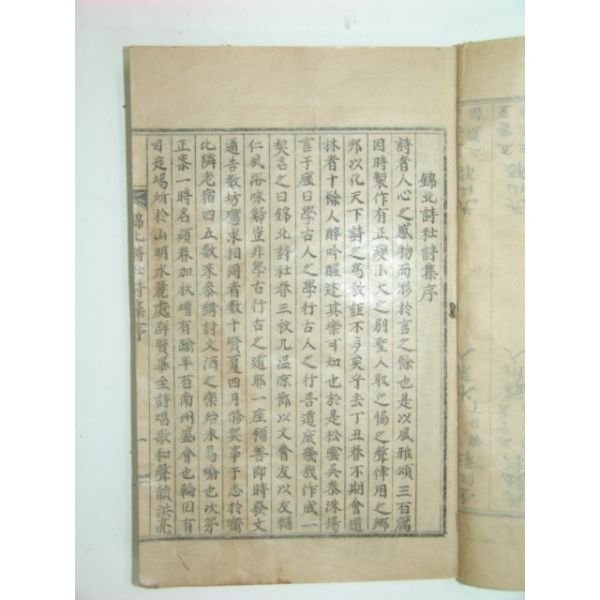 錦北詩社詩集序
詩者人心之感物而形於言之餘也是以風雅頌三百篇
因時製作有正變小大之別聖人取之愓之聲律用之鄉
邦以化天下詩之為教詎不多矣乎去丁丑春不期會遺
林者十餘人醉吟醒述其樂可知也於是松雲吳泰洙揚
言于座曰學古人之學行古人之行吾道庶幾我作成一
契名之曰錦北詩社春三秋九溫凉節以文會友以友輔
仁風浴咏歸豈非學古行古之道耶一座稱善即時發文
通告数坊應求相同者数十賢夏四月脩契事于志於齋
北隣老宿四五数来參講討文酒之樂殆未易喻也次第
正案一時名碩春加秋增有踰半百南州盛會也輪回有
司定場所於山明水麗處群賢畢至詩唱歌和聲韻洪亮
錦北詩社詩集序
一